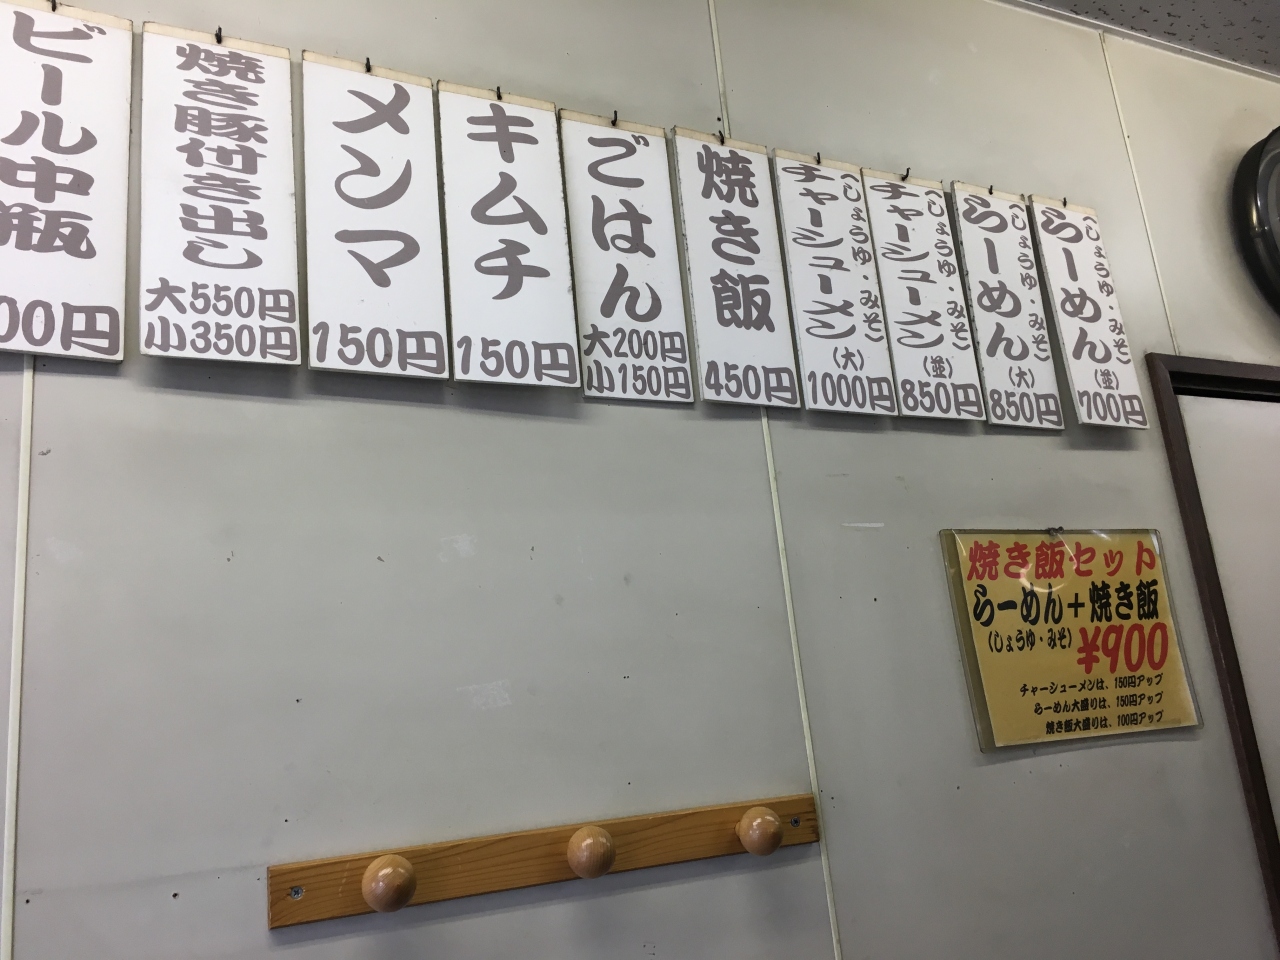 らーめん
(しょうゆ・みそ)
(並)
700円
らーめん
(しょうゆ・みそ)
(大)
850円
チャーシューメン
(しょうゆ・みそ)
(並)
850円
チャーシューメン
(しょうゆ・みそ)
(大)
1000円
焼き飯
450円
ごはん
大200円
小150円
キムチ
150円
メンマ
150円
焼き豚付き出し
大550円
小350円
ビール中瓶
00円
焼き飯セット
らーめん+焼き飯
(しょうゆ・みそ) ¥900
チャーシューメンは、150円アップ
らーめん大盛りは、150円アップ
焼き飯大盛りは、100円アップ